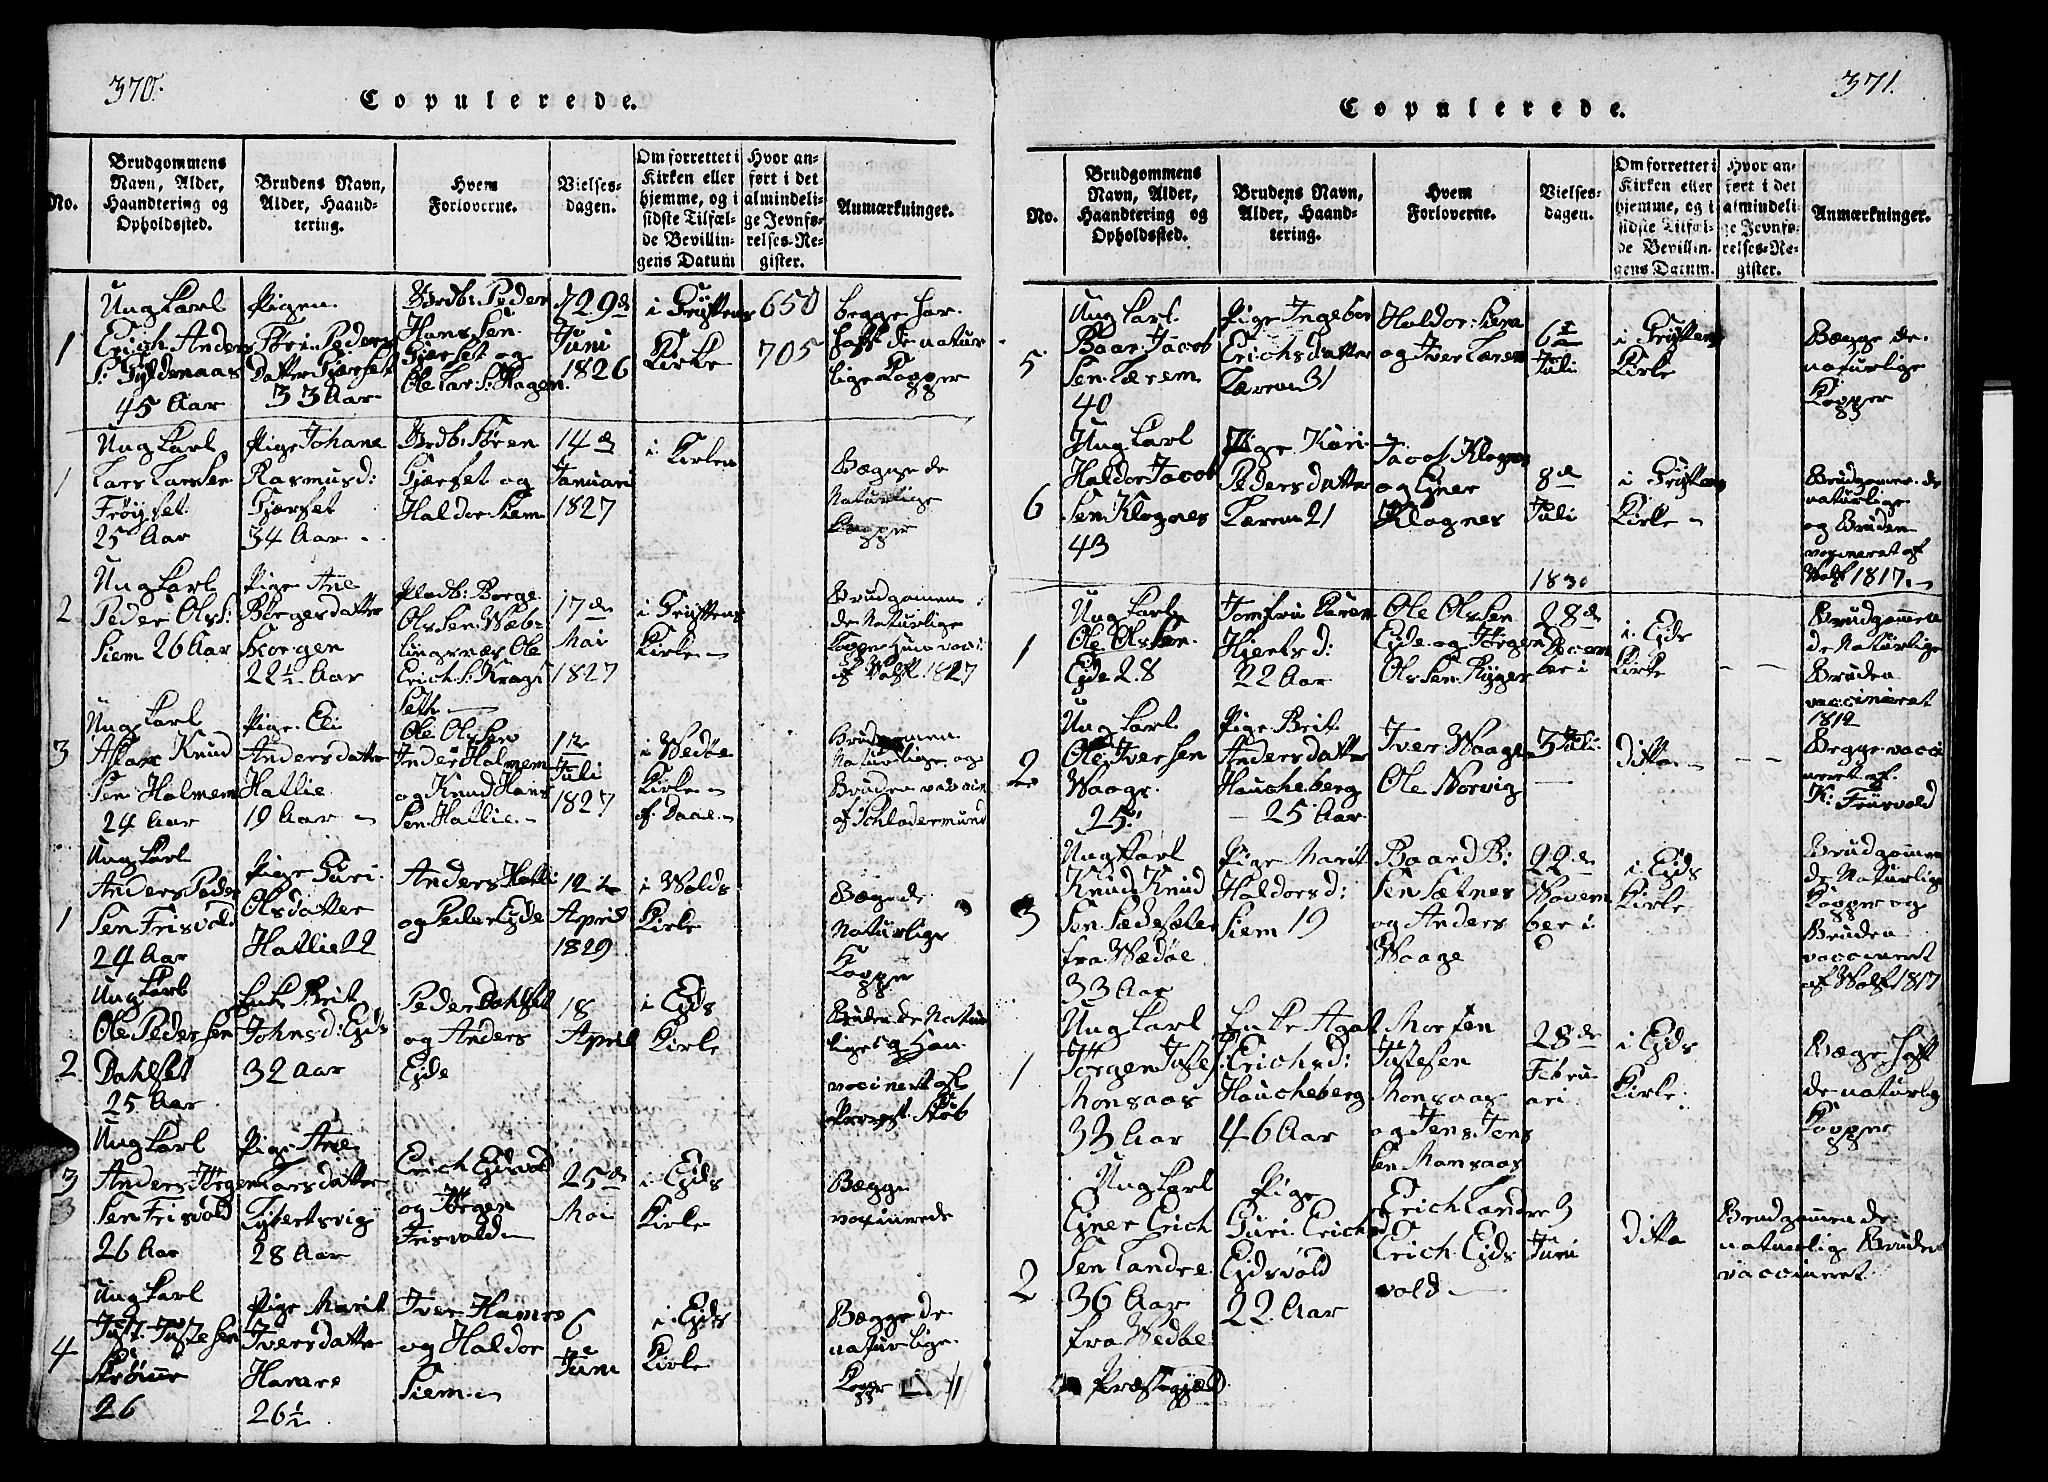 370.
Copulerede.
No.
Brudgommens
Navn, Alder,
Haandtering og
Opholdssted.
Brudens Navn,
Alder, Haand-
tering.
Hvem
Forloverne.
Vielses-
dagen.
Om forrettet i
Kirken eller
hjemme, og i
sidste Tilfæl-
de Bevillin-
gens Datum
Hvor an-
ført i det
almindeli-
ge Jevnfø-
relses-Re-
gister.
Anmærkninger.
1
Ung Karl
Erich Anders
S: Gyldenaas
45 Aar
Pigen
Peders
Datter Gjerset
33 Aar
Peder
Hans Sen
Gjerset og
Ole Lar S: Hagen.
29de
Juni
1826
i Gryttens
Kirke
650
705
begge har
haft de natur
lige Kopper
1
Ung Karl
Lars Larsen
Frøyset
25 Aar
Pige Johane
Rasmusd:
Gjerset
34 Aar
Søren
Gjerset og
Haldor Siem
14de
Januari
1827
i Kirken
Begge de
Naturlige
Kopper
2
Ung Karl
Peder Ols S:
Siem 26 Aar
Pige Ane
Børgesdatter
Torgen
22½ Aar
Børge
Ols Sen Web-
lungsnæs Ole
Erich S: Kragi
Seth
17de
Mai
1827
i Gryttens
Kirke
Brudgomen
de Naturlige
1827
3
Ung Karl
Aslak Knud
Sen Holmem
24 Aar
Pige Eli
Andersdatter
Hatlie
19 Aar
Ole Olsen
Inder Holmem
og Knud Hans
Sen Hatlie
1te
Juli
1827
i Wedøe
Kirke
af Daae
Brudgomen
Naturlige og
Bruden
af Schladermund
1
Ung Karl
Anders Peder
Sen Frisvold
24 Aar
Pige Guri
Olsdatter
Hatlie 22
Anders Hatli
og Peder Ejde
12te
April
1829
i Wolds
Kirke
Begge de
Naturlige
Kopper
2
Ung Karl
Ole Pedersen
Dahlset
25 Aar
Enke Brit
Johnsd: Ejds
32 Aar
Peder Dahlset
og Anders
Ejde
18
April
i Ejds
Kirke
Bruden de Natur
lige og Han
vaccineret af
3
Ung Karl
Anders Jørgen
Sen Frisvold
26 Aar
Pige Ane
Larsdatter
28 Aar
Erich Ejdsvold
og Jørgen
Frisvold
25de
Mai
i Ejds
Kirke
Begge
4
Ung Karl
Just Justesen
26
Pige Marit
Iversdatter
26½
Iver
og Haldor
Siem
6
Juni
i Ejds
Kirke
Begge de
naturlige
Kopper
371.
Copulerede.
No.
Brudgommens
Navn, Alder,
Haandtering og
Opholdssted.
Brudens Navn,
Alder, Haand-
tering.
Hvem
Forloverne.
Vielses-
dagen.
Om forrettet i
Kirken eller
hjemme, og i
sidste Tilfæl-
de Bevillin-
gens Datum.
Hvor an-
ført i det
almindeli-
ge Jevnfø-
relses-Re-
gister.
Anmærkninger.
5
Ung Karl
Jacob
Sen Lærem
40
Pige Ingebor
Erichsdatter
Lærem 31
Haldor Siem
og Iver Lærem
6te
Juli
i Gryttens
Kirke
Begge de
naturlige
Kopper
6
Ung Karl
Haldor Jacob
Sen Klognes
43
Pige Kari
Pedersdatter
Lærem 21
Jacob Klognes
og Ejner
Klognes
8de
Juli
i Gryttens
Kirke
Brudgomen de
naturlige
og Bruden
vaccineret af
1817.
1830
1
Ung Karl
Ole Olsen
Ejde 28
Jomfru Karen
Hjortsd:
22 Aar
Ole Olsen
Ejde og Jørgen
Olsen Ryger
28de
i Ejds
Kirke
Brudgommen
de Naturlige
Bruden
vaccineret
1812
2
Ung Karl
Ole Iversen
Waage
25
Pige Brit
Andersdatter
Haucheberg
25 Aar
Iver Waagen
Ole Norvig
3 Juli
ditto
Begge vacci
neret af
K: Frisvold
3
Ung Karl
Knud Knud
Sen
fra Wedøe
33 Aar
Pige Marit
Haldorsd:
Siem 19
Baard B:
Sen Sætnes
og Anders
Waage
22de
Novem
ber
i Ejds
Kirke
Brudgommen
de Naturlige
Kopper og
Bruden
vaccineret
af 1817
1
Ung Karl
Jørgen Justes
Monsaas
33 Aar
Enke Agat
Erichsd:
Haucheberg
46 Aar
Morten
Justesen
Monsaas
og Jens Jens
Sen Monsaas
28de
Febru
ari
i Ejds
Kirke
Begge haft
de naturlig
Kopper
2
Ung Karl
Ejner Erich
Sen Landre
36 Aar
fra Wedøe
Præstegjæld
Pige
Guri Erichsd
Ejdsvold
22 Aar
Erich Landre
Erich Ejds
vold
3
Juni
ditto
Brudgommen de
naturlig Bruden
vaccineret